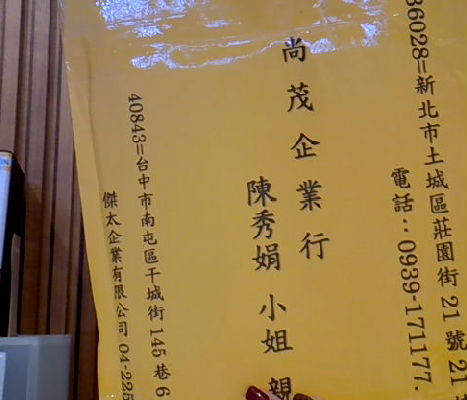 36028=新北市土城區莊園街 21 號 21
電話：0939-171177.
尚茂企業行
陳秀娟 小姐 親
40843=台中市南屯區干城街 145 巷 6
傑太企業有限公司 04-225